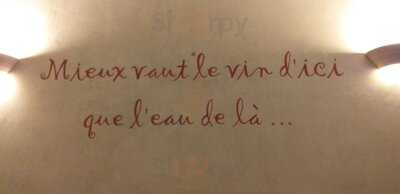 Mieux vaut le vin d'ici
que l'eau de là ...